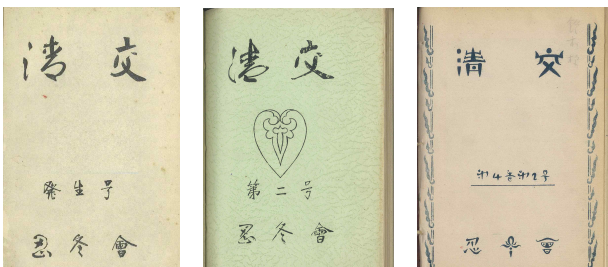 清交
発生号
忍冬會
清交
第二号
忍冬會
清交
第4巻第2号
忍冬會